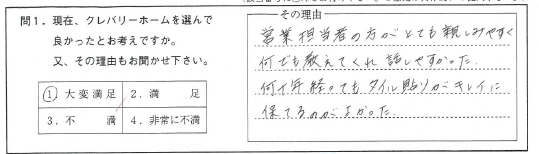 問1．現在、クレバリーホームを選んで
良かったとお考えですか。
又、その理由もお聞かせ下さい。
①大変満足 2．満　足
3．不　満 4．非常に不満
その理由
営業担当者の方がとても親しみやすく
何でも教えてくれ 話しやすかった.
何十年経ってもタイル貼りがキレイに
保てるのがよかった.